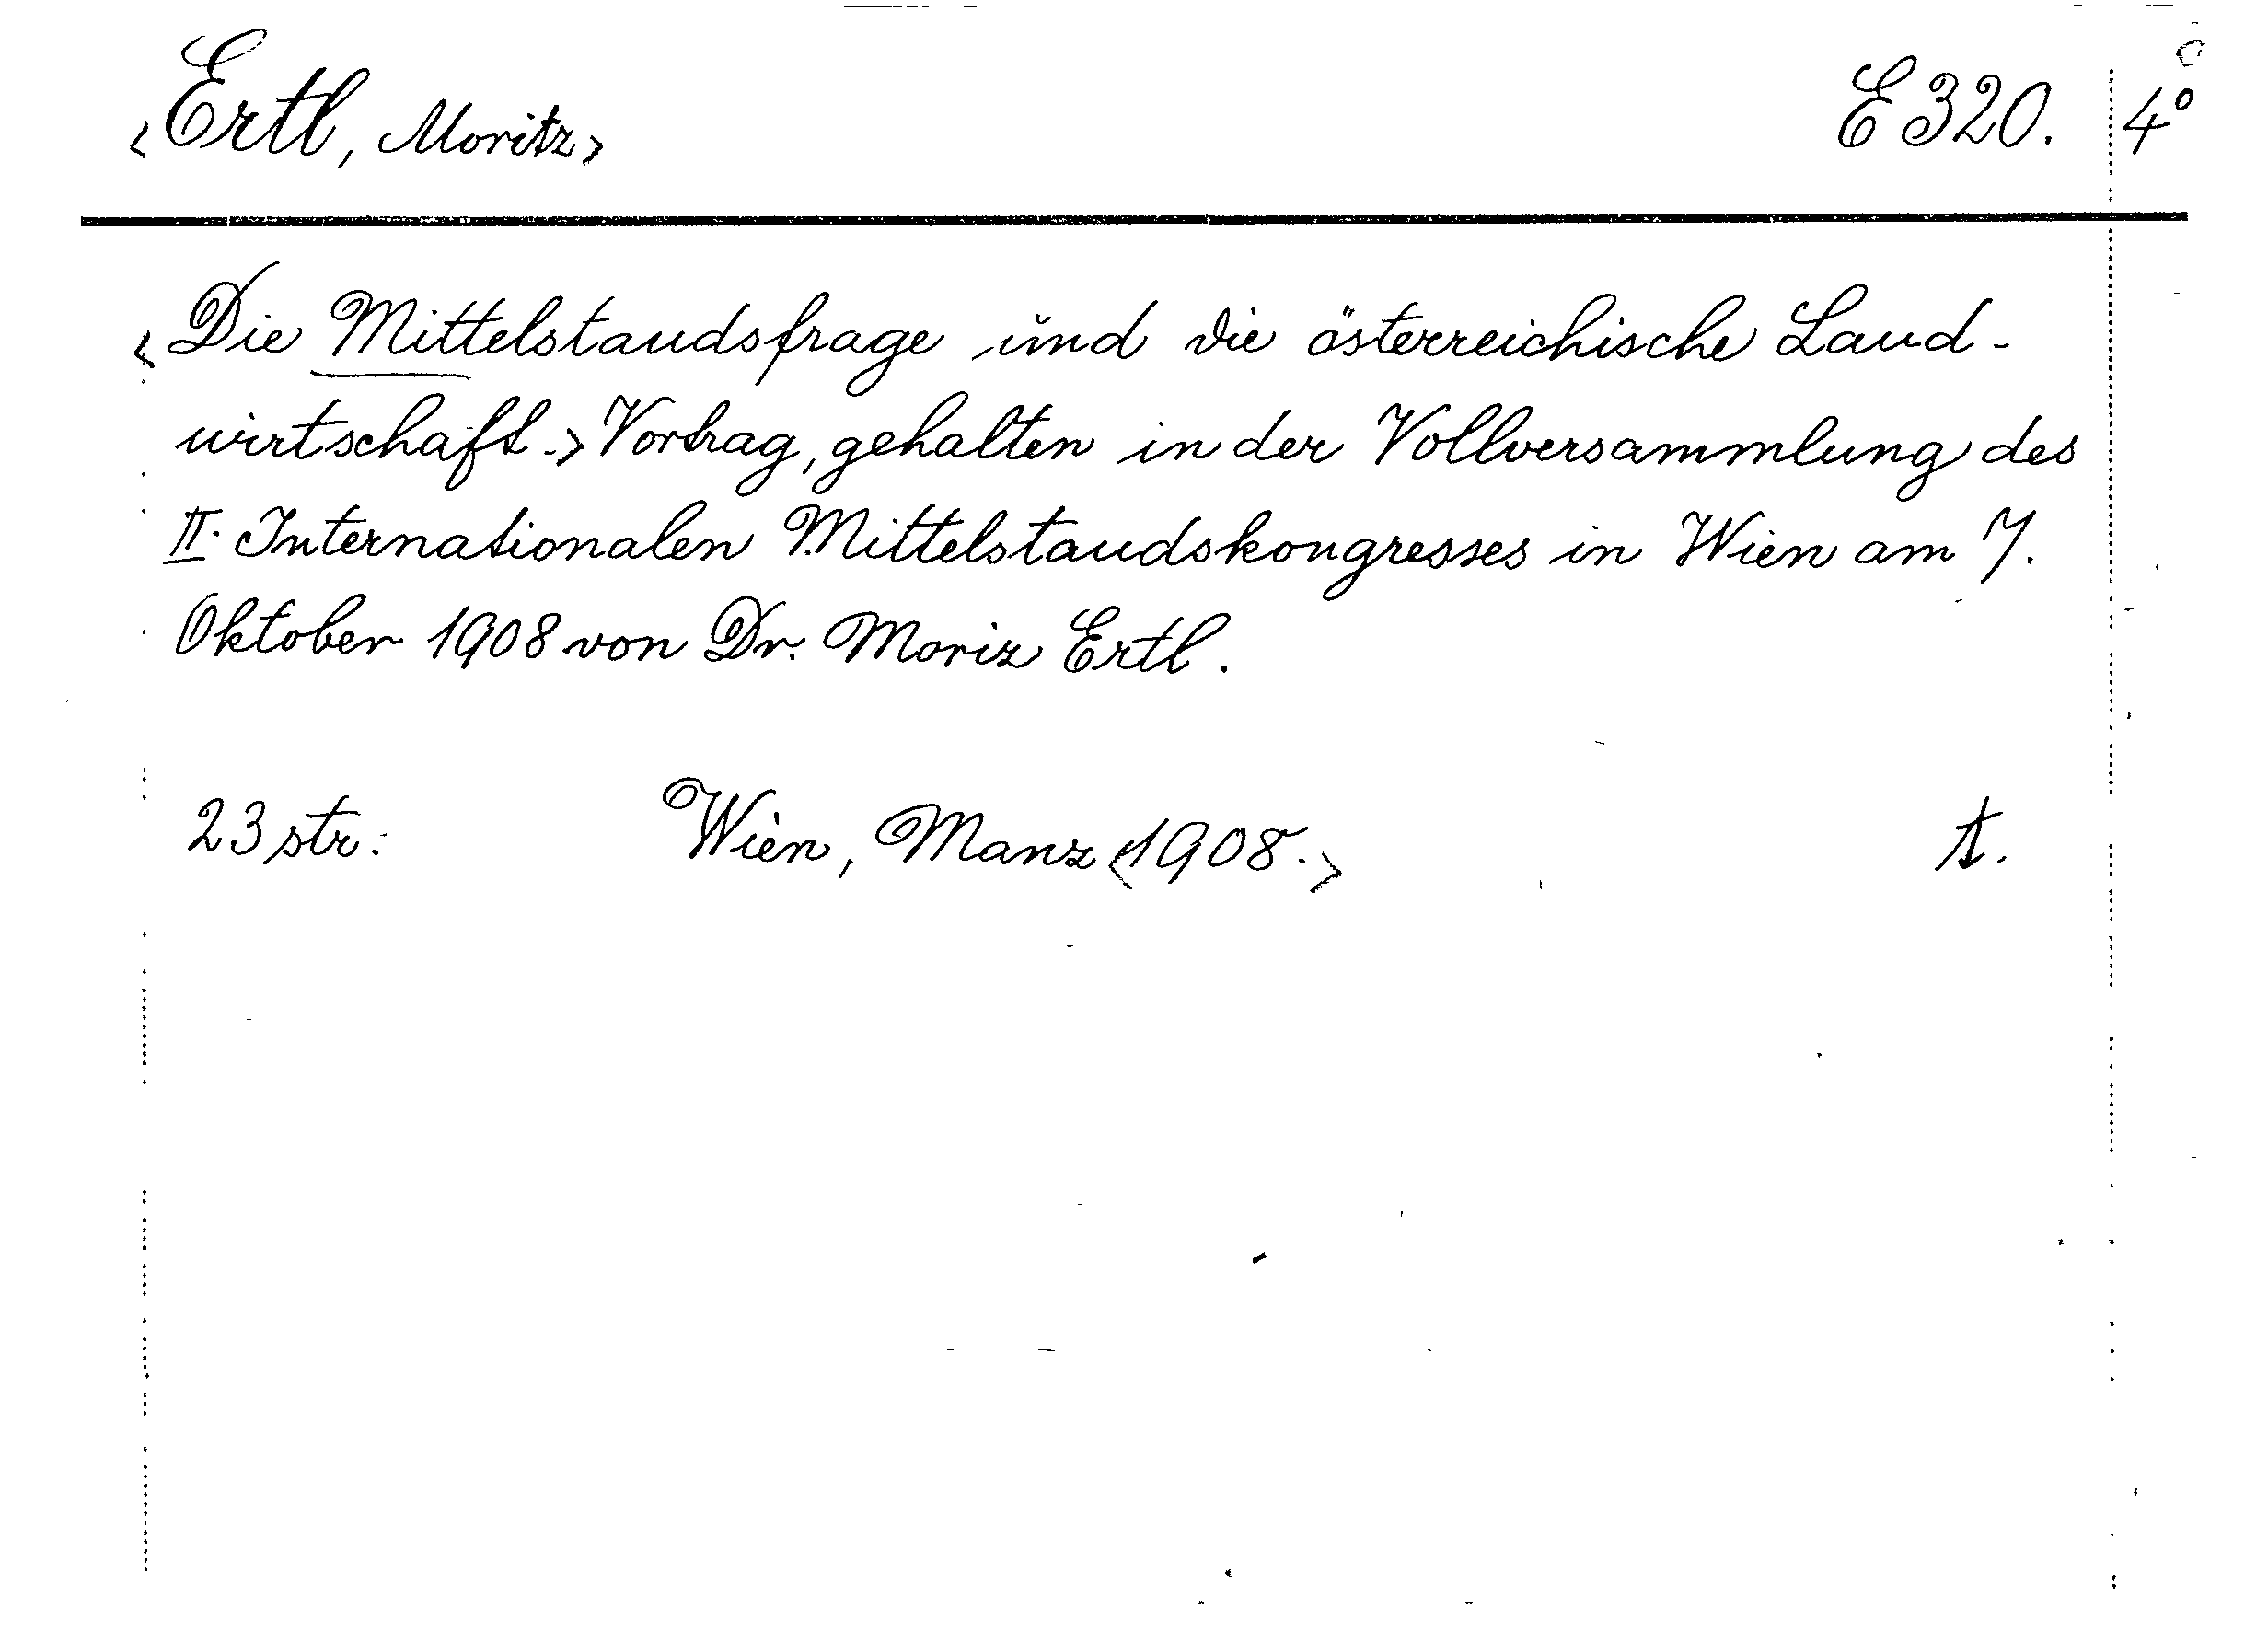 <Ertl, Moritz> E 320. 4°
<Die Mittelstandsfrage und die österreichische Land-
wirtschaft.> Vortrag, gehalten in der Vollversammlung des
II. Internationalen Mittelstandskongresses in Wien am 7.
Oktober 1908 von Dr. Moriz Ertl.
23 str. Wien, Manz <1908.> t.